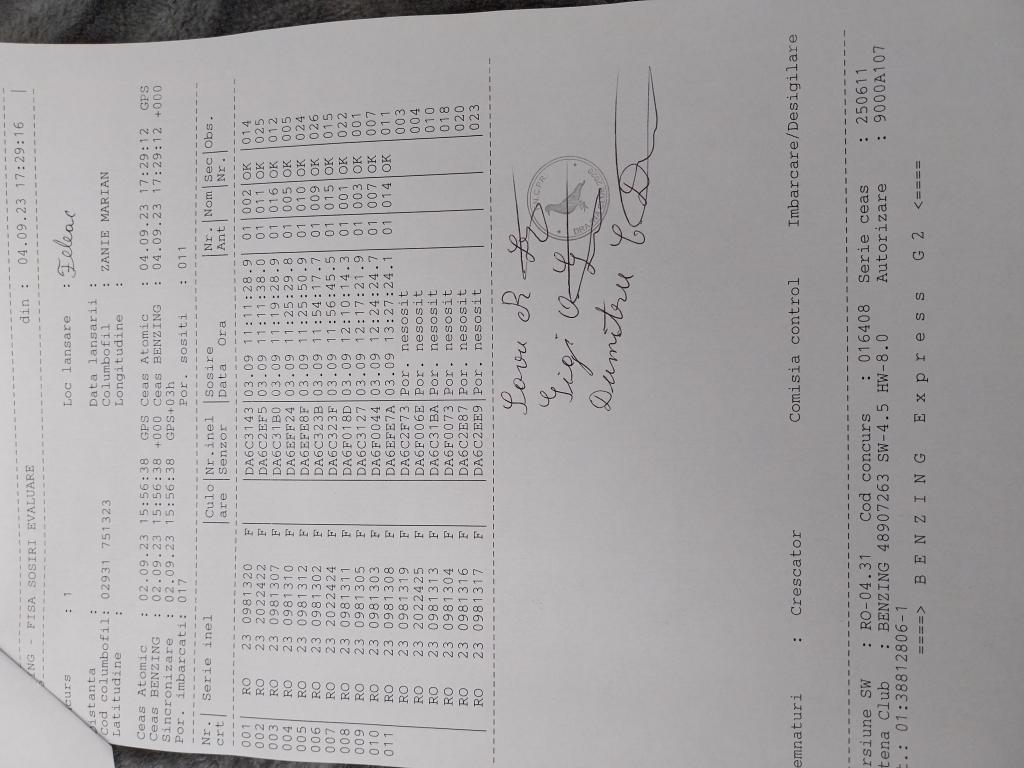 ING - FISA SOSIRI EVALUARE din : 04.09.23 17:29:16 |
curs : 1 Loc lansare : Feleac
istanta : Data lansarii :
Cod columbofil: 02931 751323 Columbofil : ZANIE MARIAN
Latitudine : Longitudine :
Ceas Atomic : 02.09.23 15:56:38 GPS Ceas Atomic : 04.09.23 17:29:12 GPS
Ceas BENZING : 02.09.23 15:56:38 +000 Ceas BENZING : 04.09.23 17:29:12 +000
Sincronizare : 02.09.23 15:56:38 GPS+03h
Por. imbarcati: 017 Por. sositi : 011
Nr.| Serie inel |Culo|Nr.inel |Sosire |Nr. |Nom|Sec|Obs.
crt| |are |Senzor |Data Ora |Ant | |Nr.|
001| RO 23 0981320 F | |DA6C3143|03.09 11:11:28.9| 01|002 OK |014
002| RO 23 2022422 F | |DA6C2EF5|03.09 11:11:38.0| 01|011 OK |025
003| RO 23 0981307 F | |DA6C31B0|03.09 11:19:28.9| 01|016 OK |012
004| RO 23 0981310 F | |DA6EFF24|03.09 11:25:29.8| 01|005 OK |005
005| RO 23 0981312 F | |DA6EFE8F|03.09 11:25:50.9| 01|010 OK |024
006| RO 23 0981302 F | |DA6C322B|03.09 11:54:17.7| 01|009 OK |026
007| RO 23 2022424 F | |DA6C323F|03.09 11:56:45.5| 01|015 OK |015
008| RO 23 0981311 F | |DA6F018D|03.09 12:10:14.3| 01|001 OK |022
009| RO 23 0981305 F | |DA6C3127|03.09 12:17:21.9| 01|003 OK |001
010| RO 23 0981303 F | |DA6F0044|03.09 12:24:24.7| 01|007 OK |007
011| RO 23 0981308 F | |DA6EFE7A|03.09 13:27:24.1| 01|014 OK |011
| RO 23 0981319 F | |DA6C2F73|Por. nesosit | | |003
| RO 23 2022425 F | |DA6F006E|Por. nesosit | | |004
| RO 23 0981313 F | |DA6C31BA|Por. nesosit | | |010
| RO 23 0981304 F | |DA6F0070|Por. nesosit | | |018
| RO 23 0981316 F | |DA6C2E87|Por. nesosit | | |020
| RO 23 0981317 F | |DA6C2EE9|Por. nesosit | | |023
Gigi
Dumitru C
emnaturi : Crescator Comisia control Imbarcare/Desigilare
rsiune SW : RO-04.31 Cod concurs : 016408 Serie ceas : 250611
tena Club : BENZING 48907263 SW-4.5 HW-8.0 Autorizare : 9000A107
t.: 01:388128D6-1
====> B E N Z I N G E x p r e s s G 2 <====